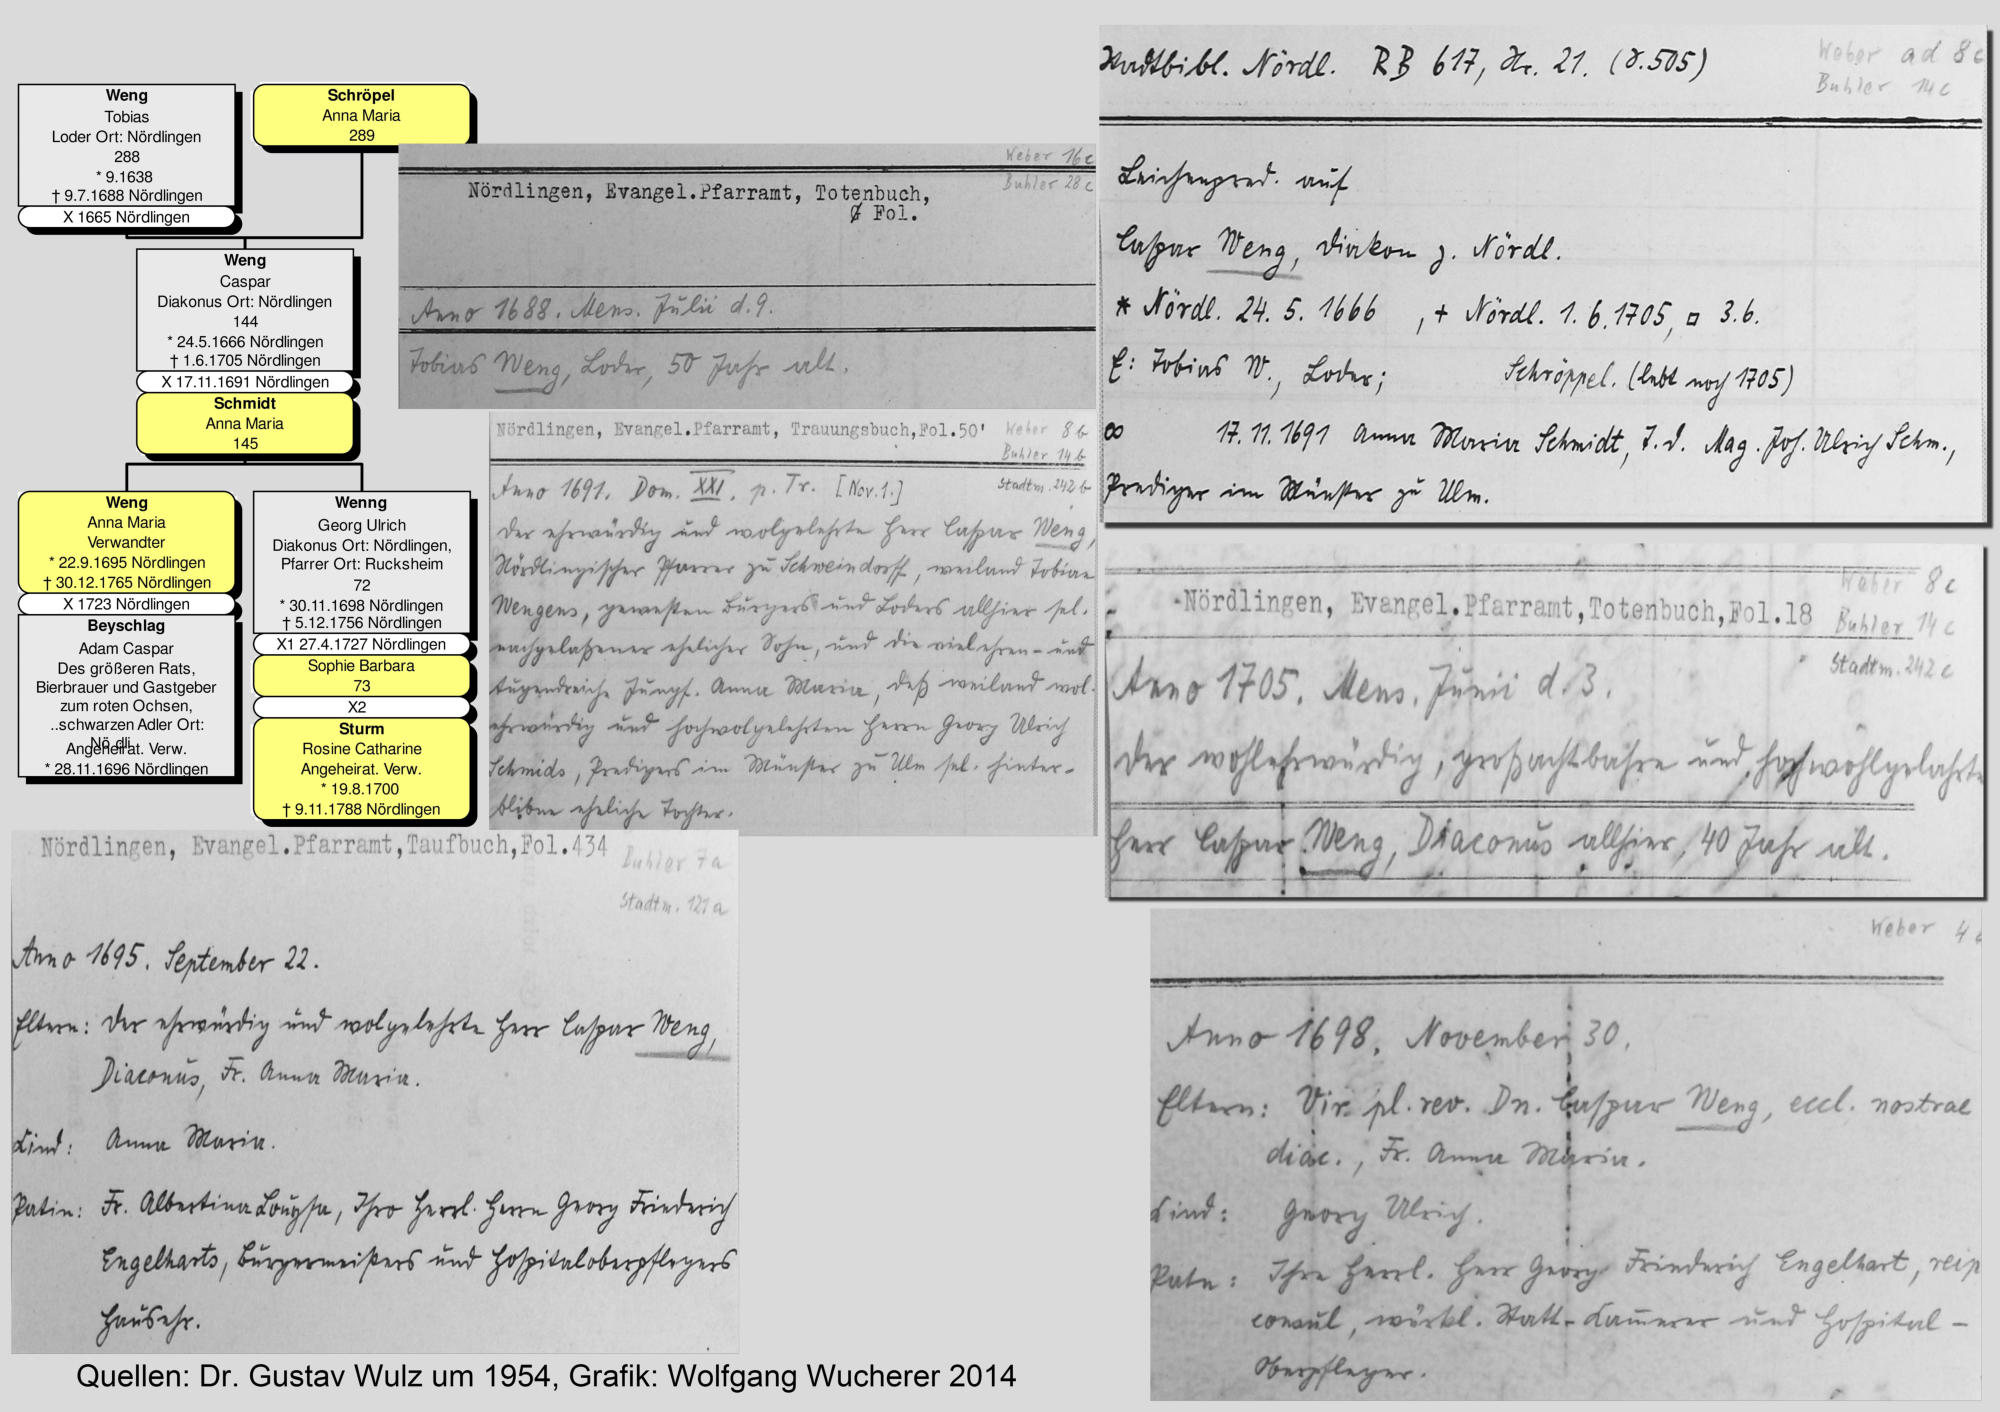 Weng
Tobias
Loder Ort: Nördlingen
288
* 9.1638
† 9.7.1688 Nördlingen
X 1665 Nördlingen
Schröpel
Anna Maria
289
Weng
Caspar
Diakonus Ort: Nördlingen
144
* 24.5.1666 Nördlingen
† 1.6.1705 Nördlingen
X 17.11.1691 Nördlingen
Schmidt
Anna Maria
145
Weng
Anna Maria
Verwandter
* 22.9.1695 Nördlingen
† 30.12.1765 Nördlingen
X 1723 Nördlingen
Beyschlag
Adam Caspar
Des größeren Rats,
Bierbrauer und Gastgeber
zum roten Ochsen,
..schwarzen Adler Ort:
Angeheirat. Verw.
* 28.11.1696 Nördlingen
Wenng
Georg Ulrich
Diakonus Ort: Nördlingen,
Pfarrer Ort: Rucksheim
72
* 30.11.1698 Nördlingen
† 5.12.1756 Nördlingen
X1 27.4.1727 Nördlingen
Sophie Barbara
73
X2
Sturm
Rosine Catharine
Angeheirat. Verw.
* 19.8.1700
† 9.11.1788 Nördlingen
Weber 16c
Buhler 28c
Nördlingen, Evangel.Pfarramt, Totenbuch,
Fol.
Anno 1688. Mens. Julii d. 9.
Tobias Weng, Loder, 50 Jahr alt.
Nördlingen, Evangel.Pfarramt, Trauungsbuch,Fol.50'
Weber 8b
Buhler 14b
Stadtm. 242b
Anno 1691. Dom. XXI. p. Tr. [Nov.1.]
Der ehrwürdig und wolgelehrte Herr Caspar Weng,
Nördlingischer Pfarrer zu Schweindorff, weiland Tobiae
Wengens, gewesten Burgers und Loders allhier sel.
nachgelaßener ehelicher Sohn, und die viel ehren- und
tugendreiche Jungf. Anna Maria, deß weiland wol-
ehrwürdig und hochwolgelehrten Herrn Georg Ulrich
Schmids, Predigers im Münster zu Ulm sel. hinter-
blibne eheliche Tochter.
Stadtbibl. Nördl. RB 617, Nr. 21. (S.505)
Weber ad 8c
Buhler 14c
Leichenpred. auf
Caspar Weng, Diakon z. Nördl.
* Nördl. 24. 5. 1666 , + Nördl. 1. 6. 1705, □ 3.6.
E: Tobias W., Loder; Schröppel. (lebt noch 1705)
∞ 17. 11. 1691 Anna Maria Schmidt, T. d. Mag. Joh. Ulrich Schm.,
Prediger im Münster zu Ulm.
Weber 8c
Nördlingen, Evangel.Pfarramt,Totenbuch,Fol.18
Buhler 14c
Stadtm. 242c
Anno 1705. Mens. Junii d. 3.
Der wohlehrwürdig, großachtbahre und hochwohlgelahrte
Herr Caspar Weng, Diaconus allhier, 40 Jahr alt.
Nördlingen, Evangel.Pfarramt,Taufbuch,Fol.434
Buhler 7a
Stadtm. 121a
Anno 1695. September 22.
Eltern: Der ehrwürdig und wolgelehrte Herr Caspar Weng,
Diaconus, Fr. Anna Maria.
Kind: Anna Maria.
Patin: Fr. Albertina Louysa, Ihro Herrl. Herrn Georg Friederich
Engelharts, Burgermeisters und Hospitaloberpflegers
Hausehr.
Weber 4c
Anno 1698. November 30.
Eltern: Vir pl. rev. Dn. Caspar Weng, eccl. nostrae
diac., Fr. Anna Maria.
Kind: Georg Ulrich.
Pate: Ihre Herrl. Herr Georg Friederich Engelhart, reip
consul, würkl. Statt-Kamerer und Hospital-
oberpfleger.
Quellen: Dr. Gustav Wulz um 1954, Grafik: Wolfgang Wucherer 2014